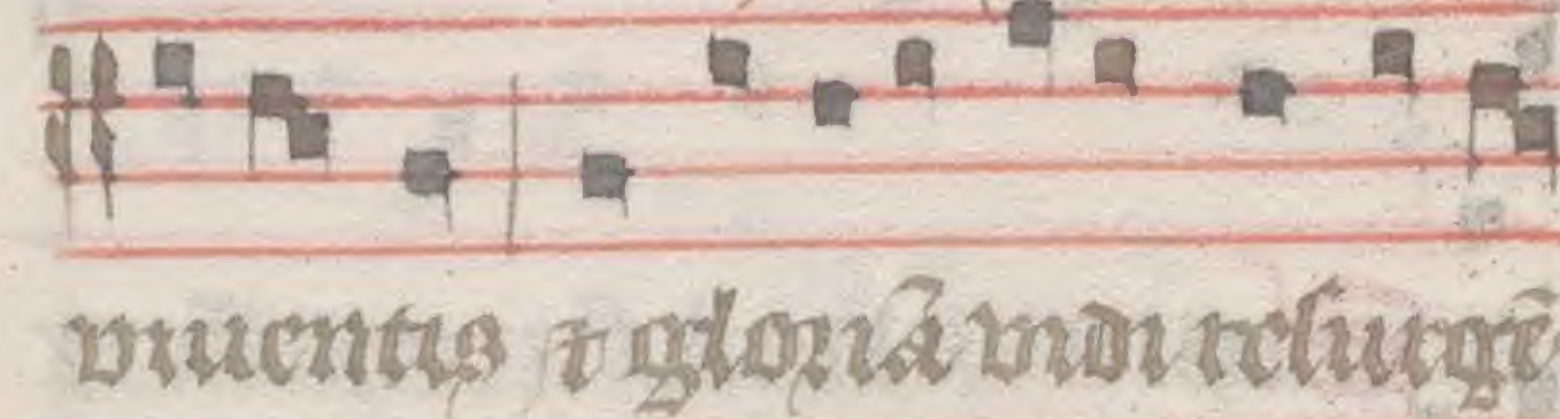 viuentis ⁊ gloriā vidi resurgē